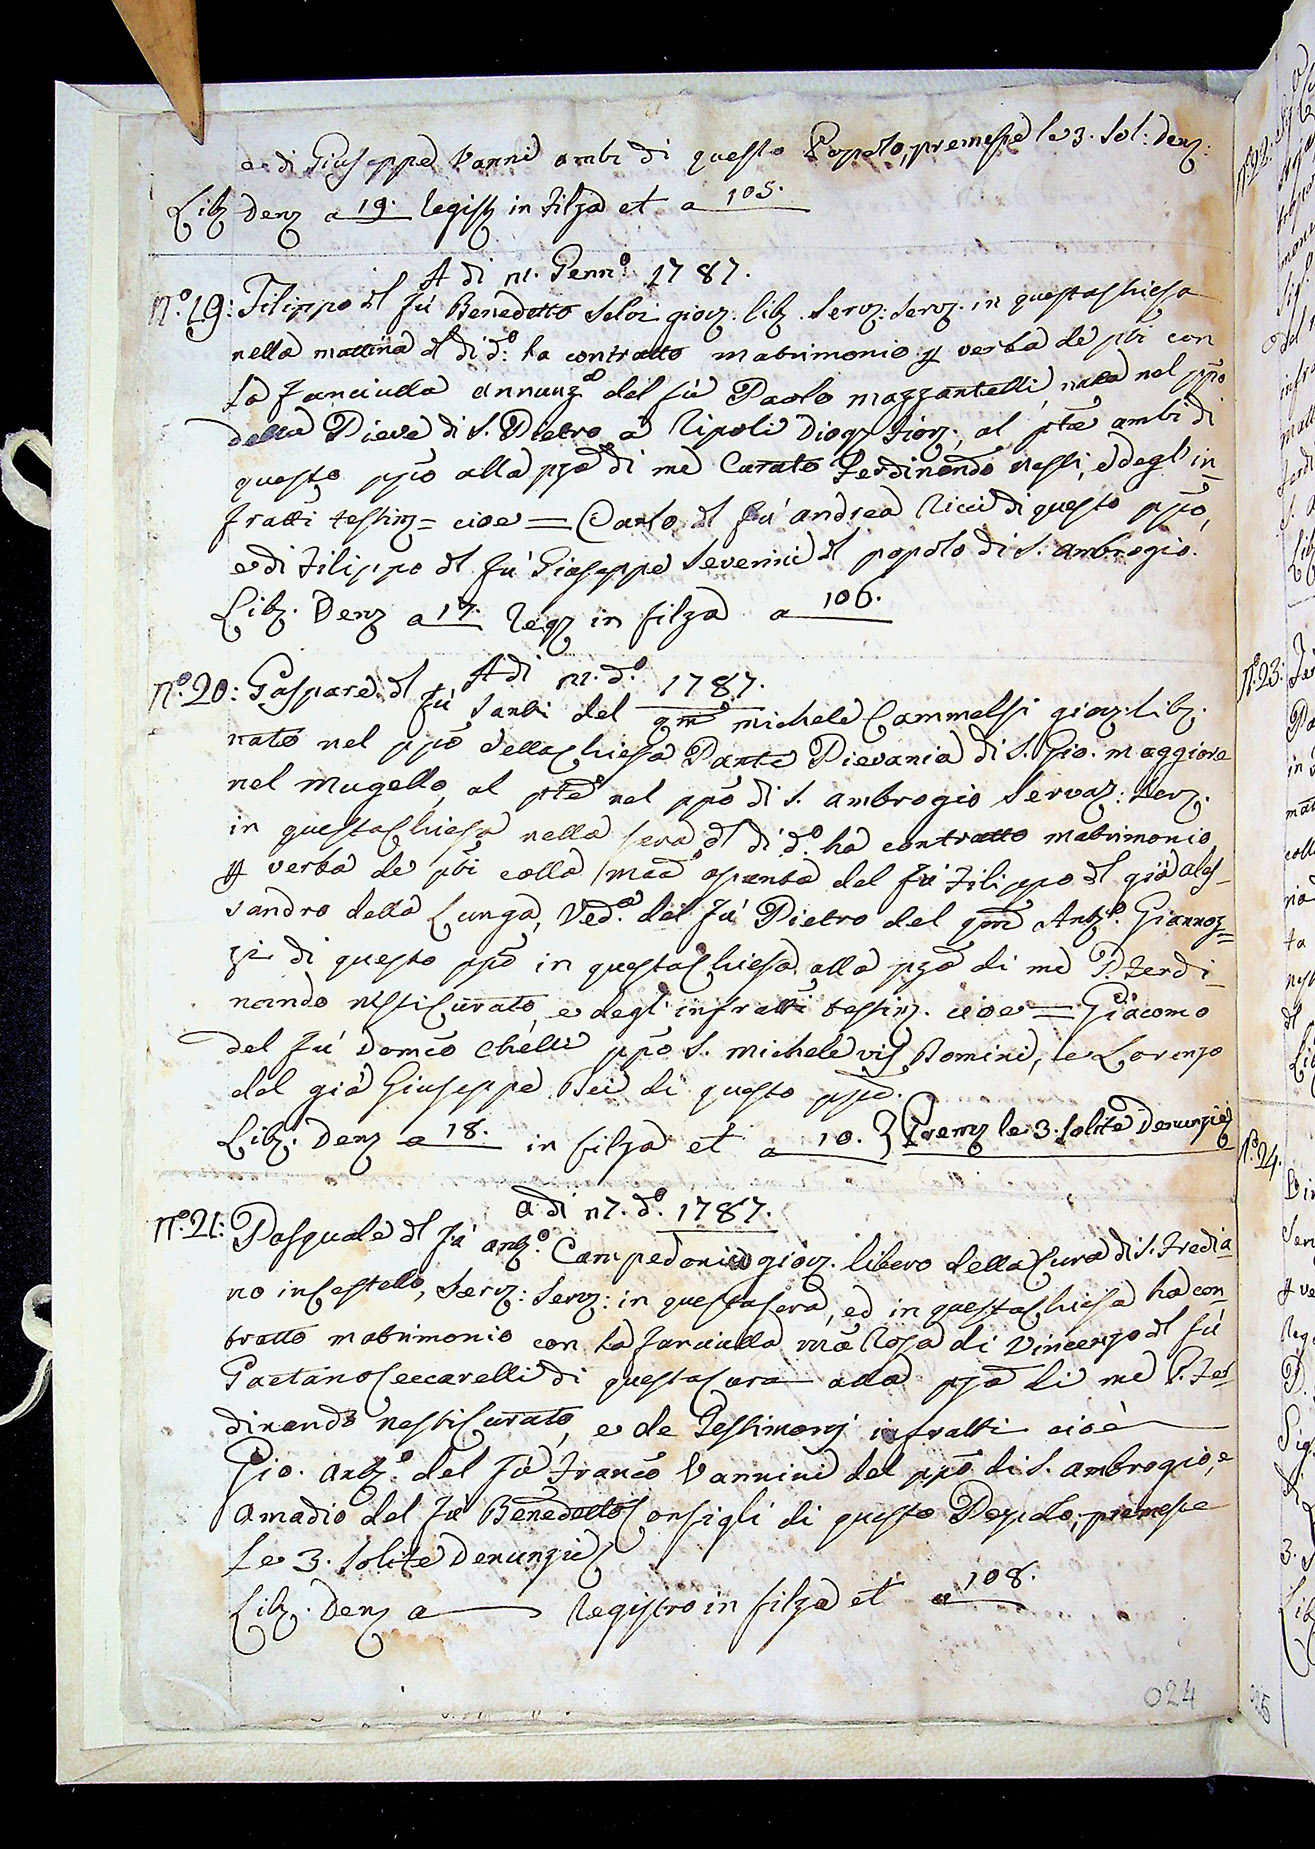 e di Giuseppe Vanni ambi di questo Popolo, premesse le 3. sol: denz:
Lib: Denz a 19. Regist in Filza et a 105.
A di 11. Genn.º 1787.
Nº. 19: Filippo del fu Benedetto Selvi giov. lib. Servz: Servz. in questa Chiesa
nella mattina del dì dº: ha contratto matrimonio p verba de pbi con
la Fanciulla Annunz.ª del fù Paolo Mazzantelli, nata nel ppo
della Pieve di S. Pietro a Ripoli Diog Fior., al pte ambi di
questo ppo alla pza di me Curato Ferdinando Nesti, e degl'in-
fratti testim = cioe = Carlo del fu' Andrea Ricci di questo ppo,
e di Filippo del fu' Giuseppe Severini del popolo di S. Ambrogio.
Lib. Denz a 17. Reg in filza a 106.
A di dº. 1787.
Nº. 20: Gaspare del fu Santi del qm Michele Cammelli giov. lib.
nato nel ppo della Chiesa Pante Pievania di S. Gio. Maggiore
nel Mugello, al pte nel ppo di S. Ambrogio Servaz: Serz.
in questa Chiesa nella sera del di dº. ha contratto matrimonio
p verba de pbi colla Maa Assunta del fu' Filippo del già Ales-
sandro della Lunga, Ved.ª del fu' Pietro del qm Antº. Giannoz=
zi di questo ppo in questa Chiesa alla pza di me P. Ferdi-
nando Nesti Curato, e degl'infratti testim. cioe = Giacomo
del fu' Domco Chelli ppo S. Michele Visdomini, e Lorenzo
del già Giuseppe Bei di questo ppo.
Lib. Denz a 18. in filza et a 10. Prem le 3. solite Denunzie
a di 17. dº. 1787.
Nº. 21: Pasquale del fu Antº. Campedonico giov. libero della Cura di S. Fredia-
no in Cestello, Servz: Servz: in questa sera, ed in questa Chiesa ha con-
tratto matrimonio con la Fanciulla Ma Rosa di Vincenzo del fu
Gaetano Ceccarelli di questa Cura alla pza di me P. Fer-
dinando Nesti Curato, e de Testimonj infratti cioè
Gio. Antº. del fu' Franco Vannini del ppo di S. Ambrogio, e
Amadio del fu Benedetto Consigli di questo Popolo, premesse
le 3. solite Denunzie
Lib. Denz a Registro in filza et a 108.
024
Nº. 22.
Nº. 23:
Nº. 24.